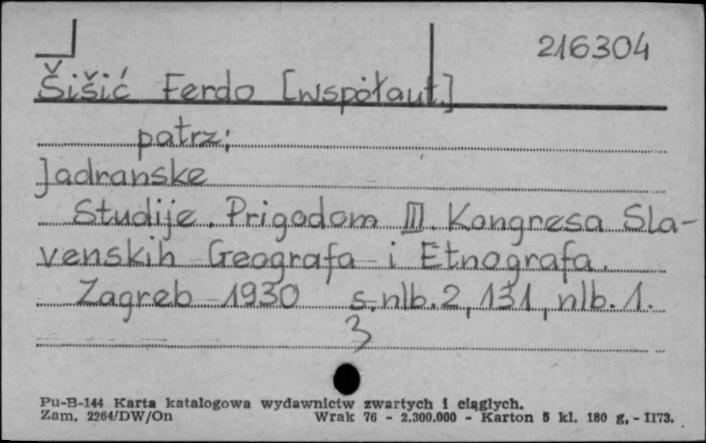 216304
Šišić Ferdo [współaut.]
patrz:
Jadranske
Studije. Prigodom III. Kongresa Sla-
venskih Geografa i Etnografa.
Zagreb 1930 s. nlb. 2, 131, nlb. 1.
3
Pu-B-144 Karta katalogowa wydawnictw zwartych i ciągłych.
Zam. 2264/DW/On Wrak 76 - 2.300.000 - Karton 5 kl. 180 g, - II73.